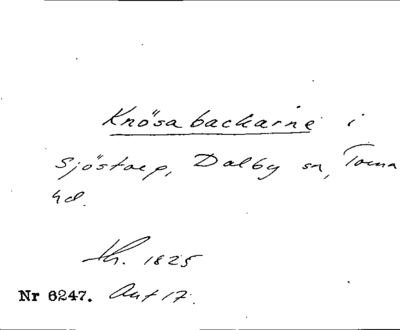 Knösabackarne i
Sjöstorp, Dalby sn, Torna
hd.
1825
Nr 6247. Ant 17.